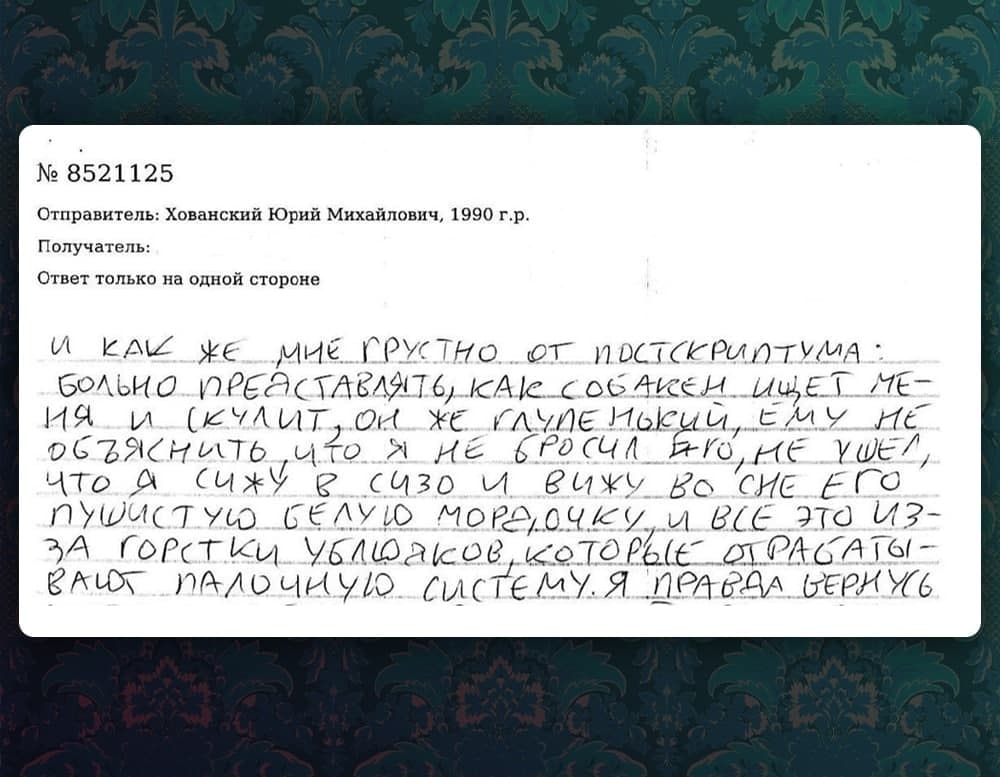 № 8521125
Отправитель: Хованский Юрий Михайлович, 1990 г.р.
Получатель:
Ответ только на одной стороне
И КАК ЖЕ МНЕ ГРУСТНО ОТ ПОСТСКРИПТУМА:
БОЛЬНО ПРЕДСТАВЛЯТЬ, КАК СОБАКЕН ИЩЕТ МЕ-
НЯ И СКУЛИТ, ОН ЖЕ ГЛУПЕНЬКИЙ, ЕМУ НЕ
ОБЪЯСНИТЬ, ЧТО Я НЕ БРОСИЛ ЕГО, НЕ УШЕЛ,
ЧТО Я СИЖУ В СИЗО И ВИЖУ ВО СНЕ ЕГО
ПУШИСТУЮ БЕЛУЮ МОРДОЧКУ, И ВСЕ ЭТО ИЗ-
ЗА ГОРСТКИ УБЛЮДКОВ, КОТОРЫЕ ОТРАБАТЫ-
ВАЮТ ПАЛОЧНУЮ СИСТЕМУ. Я ПРАВДА ВЕРНУСЬ